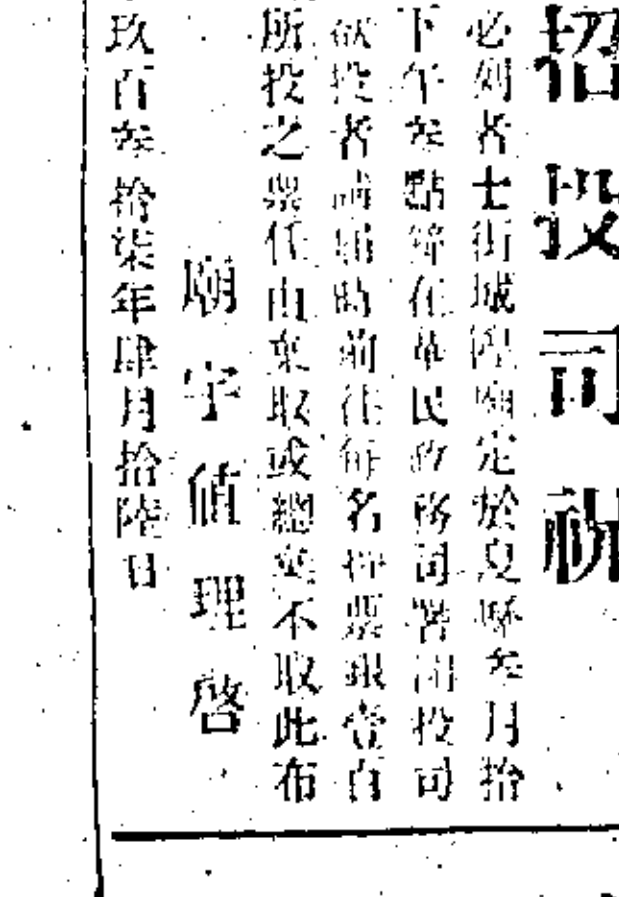 招投司祝
必列者士街城隍廟定於夏曆叁月拾
下午叁點鐘在華民政務司署開投司
欲投者請屆時前往每名押票銀壹百
所投之票任由棄取或總棄不取此布
廟宇值理啓
玖百叁拾柒年肆月拾陸日